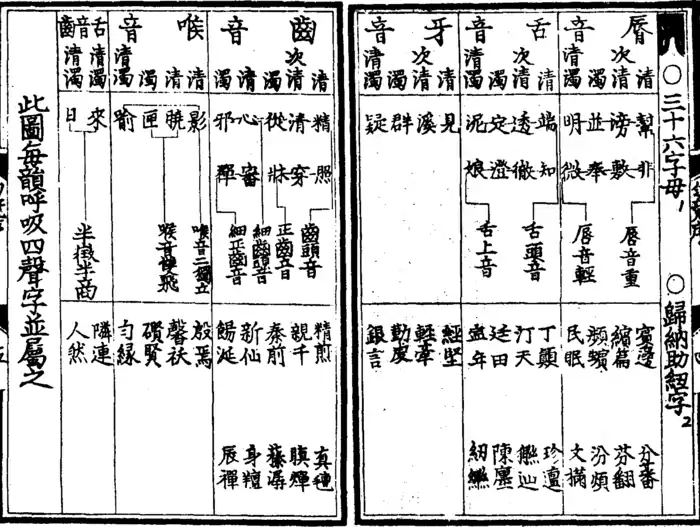 ○三十六字母1 ○歸納助紐字2
脣音 舌音 牙音
清 次清 濁 清濁 清 次清 濁 清濁 清 次清 濁 清濁
幫 滂 並 明 端 透 定 泥 見 溪 群 疑
非 敷 奉 微 知 徹 澄 娘
脣音重 脣音輕 舌頭音 舌上音
賓邊 繽篇 頻蠙 民眠 丁顛 汀天 廷田 經堅 輕牽 勤虔 銀言
分番 芬翻 汾煩 文樠 珍邅 陳廛
齒音 喉音 舌齒音
清 次清 濁 清 濁 清 清 濁 清濁 清濁 清濁
精 清 從 心 邪 影 曉 匣 喻 來 日
照 穿 牀 審 禪
齒頭音 正齒音 細齒頭音 細正齒音 喉音二獨立 喉音雙飛 半徵半商
精煎 親千 秦前 新仙 餳涎 殷焉 馨祆 礥賢 勻緣 隣連 人然
真氈 身羶 辰禪
此圖每韻呼吸四聲字並屬之